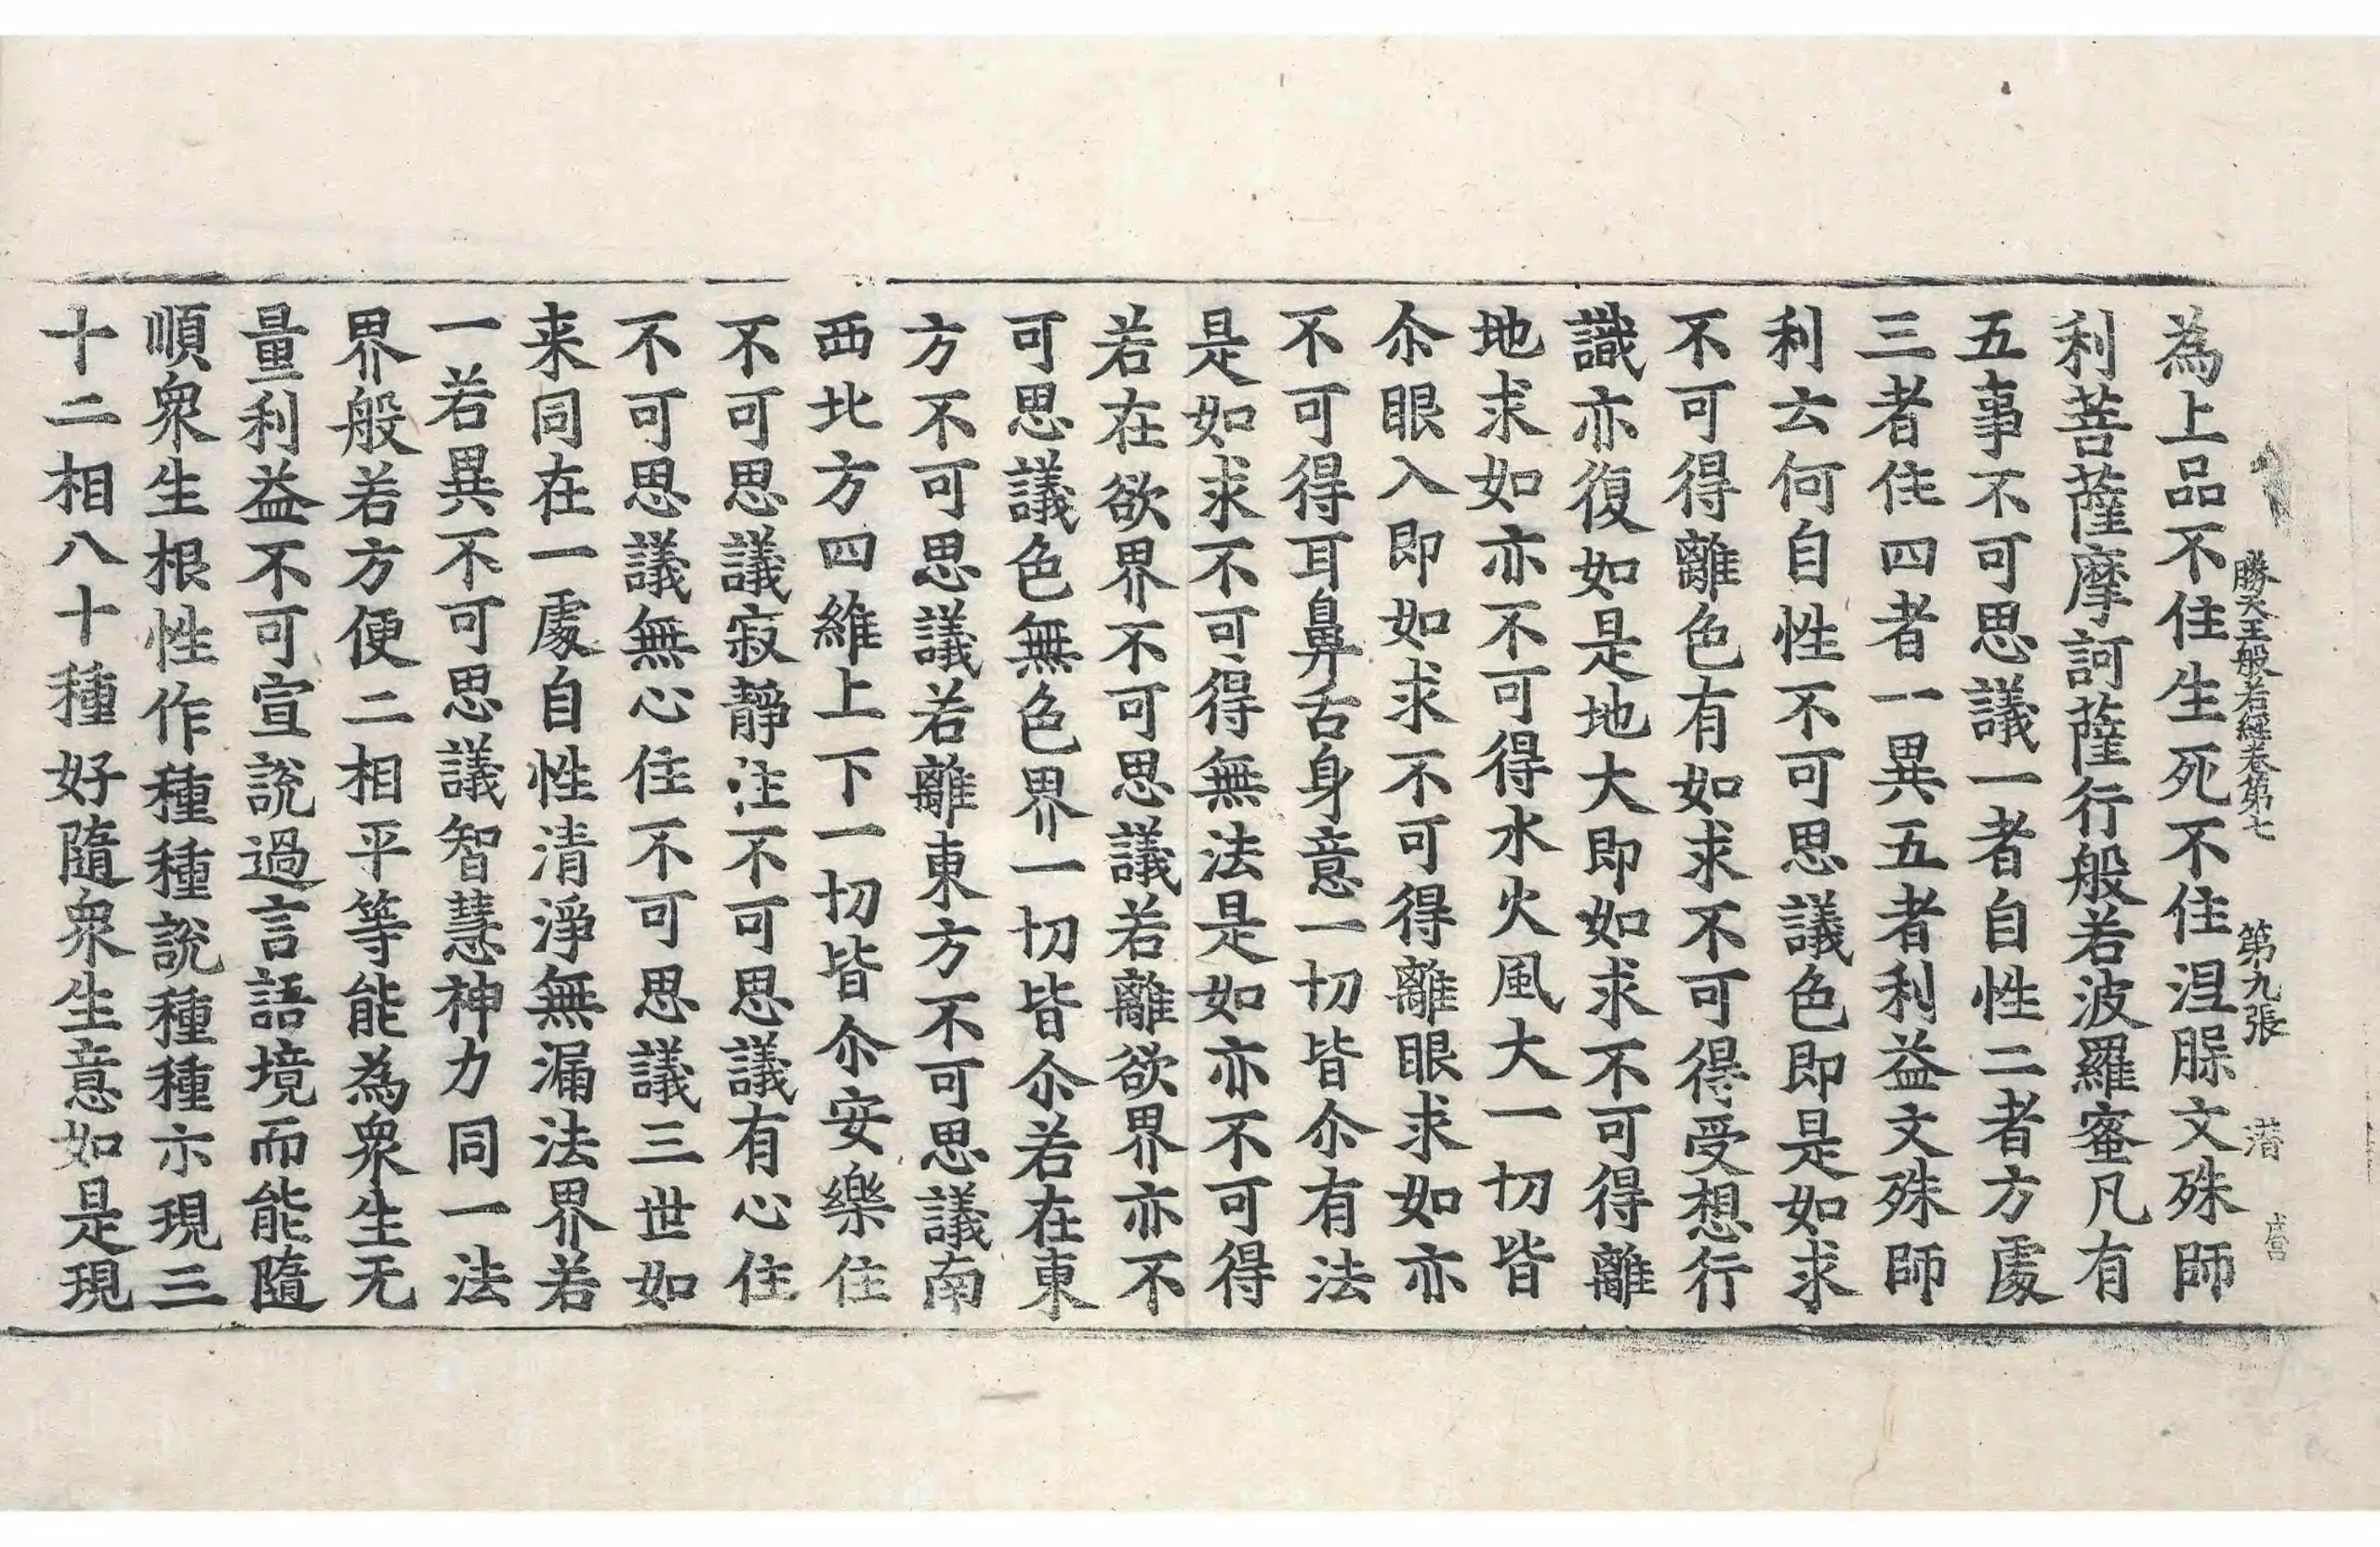 勝天王般若經卷第七　第九張　潛
為上品不住生死不住涅槃文殊師
利菩薩摩訶薩行般若波羅蜜凡有
五事不可思議一者自性二者方處
三者住四者一異五者利益文殊師
利云何自性不可思議色即是如求
不可得離色有如求不可得受想行
識亦復如是地大即如求不可得離
地求如亦不可得水火風大一切皆
尒眼入即如求不可得離眼求如亦
不可得耳鼻舌身意一切皆尒有法
是如求不可得無法是如亦不可得
若在欲界不可思議若離欲界亦不
可思議色無色界一切皆尒若在東
方不可思議若離東方不可思議南
西北方四維上下一切皆尒安樂住
不可思議寂靜住不可思議有心住
不可思議無心住不可思議三世如
来同在一處自性清淨無漏法界若
一若異不可思議智慧神力同一法
界般若方便二相平等能為衆生无
量利益不可宣說過言語境而能隨
順衆生根性作種種說種種示現三
十二相八十種好隨衆生意如是現